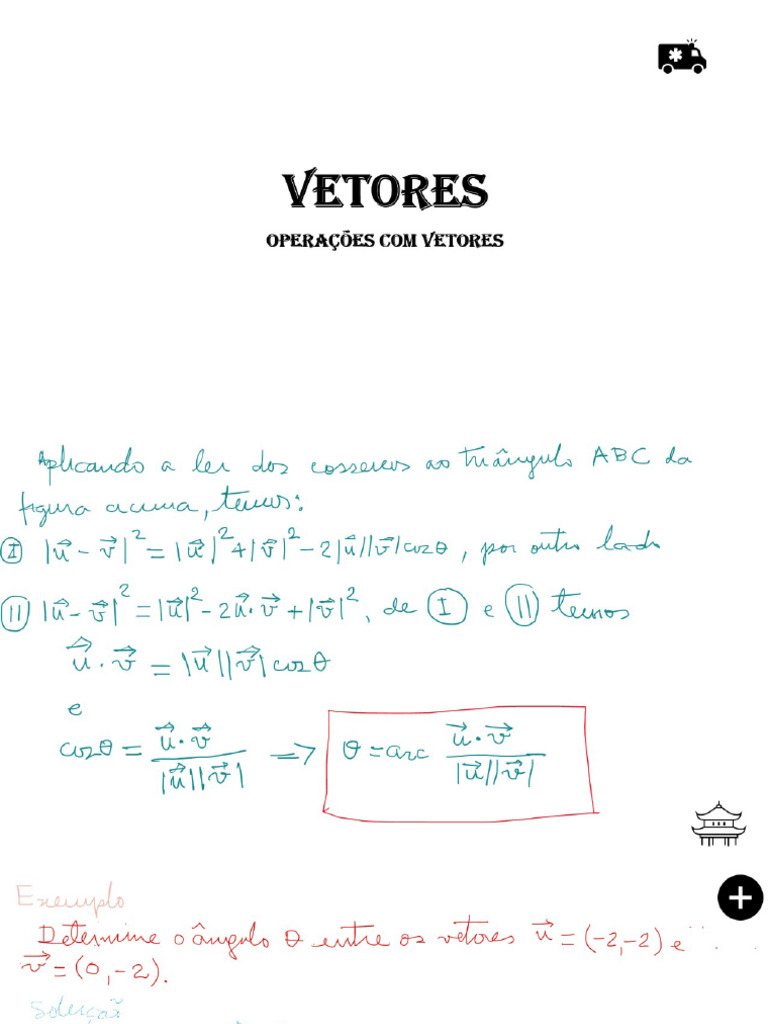 VETORES
OPERAÇÕES COM VETORES
Aplicando a lei dos cossenos ao triângulo ABC da
figura acima, temos:
Ⓘ |u⃗ - v⃗|² = |u⃗|² + |v⃗|² - 2|u⃗||v⃗|cosθ, por outro lado
Ⓘⓘ |u⃗ - v⃗|² = |u⃗|² - 2u⃗·v⃗ + |v⃗|², de Ⓘ e Ⓘⓘ temos
u⃗·v⃗ = |u⃗||v⃗|cosθ
e
cosθ = u⃗·v⃗ / |u⃗||v⃗| => θ = arc u⃗·v⃗ / |u⃗||v⃗|
Exemplo
Determine o ângulo θ entre os vetores u⃗ = (-2,-2) e
v⃗ = (0,-2).
Solução